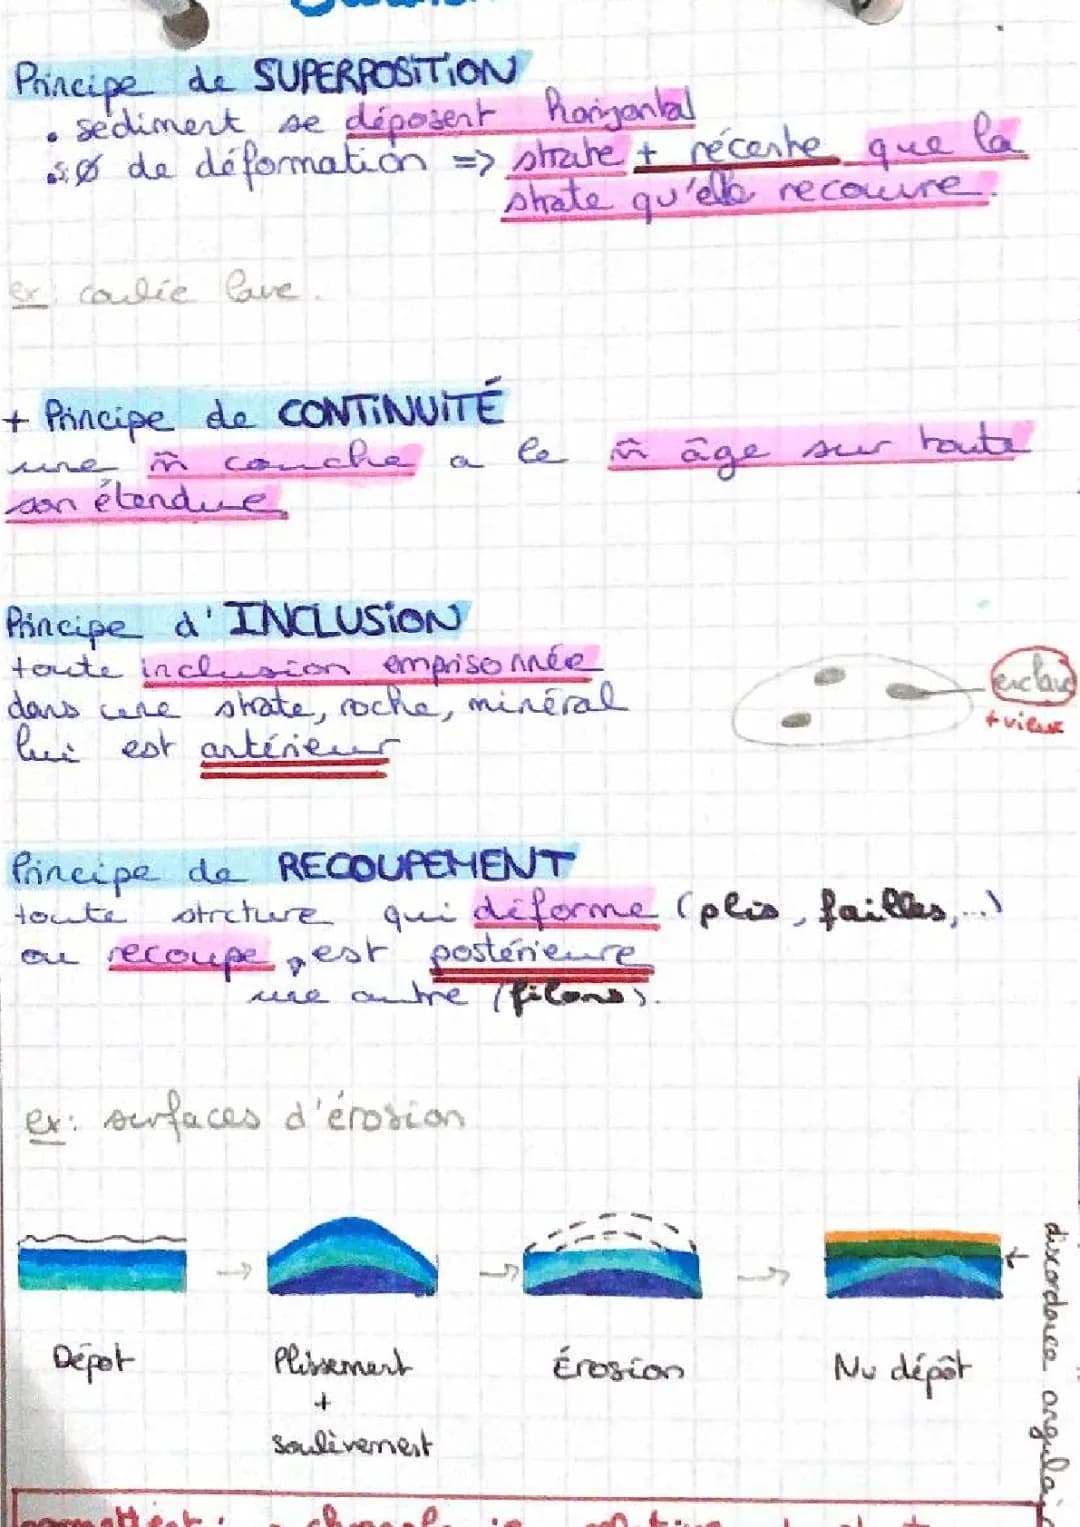 Principe de SUPERPOSITION
• sédiment se déposent horizontal
• si Ø de déformation => strate + récente que la
strate qu'elle recouvre.
ex: coulée lave.
+ Principe de CONTINUITÉ
une m̂ couche a le m̂ âge sur toute
son étendue
Principe d'INCLUSION
toute inclusion emprisonnée
dans une strate, roche, minéral
lui est antérieur
enclave
+ vieux
Principe de RECOUPEMENT
toute strcture qui déforme (plis, failles,...)
ou recoupe, est postérieure
une autre (filons).
ex: surfaces d'érosion
Dépot
Plissement
+
Soulèvement
Érosion
Nv dépôt
discordance angulai